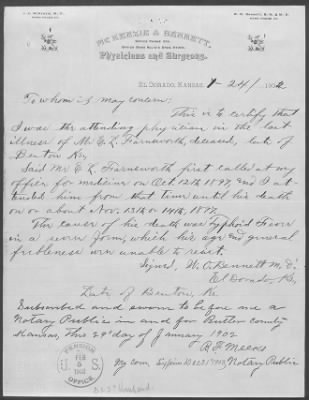 McKENZIE & BENNETT,
Physicians and Surgeons.
EL DORADO, KANSAS, 1-24/ 1902
To whom it may concern:
This is to certify that
I was the attending physician in the last
illness of Mr E. L. Farnsworth, deceased, late of
Benton Ks.
Said Mr E. L. Farnsworth first called at my
office for medicine on Oct. 12th 1897, and I at-
tended him from that time until his death
on or about Nov. 13th or 14th, 1897.
The cause of his death was Typhoid Fever
in a severe form, which his age and general
feebleness were unable to resist.
Signed, W. C. Bennett M. D.
El Dorado, Ks.
Late of Benton, Ks.
Subscribed and sworn to before me a
Notary Public in and for Butler County
Kansas, this 29th day of January 1902
Notary Public
My com. Expires Dec 21
PENSION
FEB
1902
U S
OFFICE